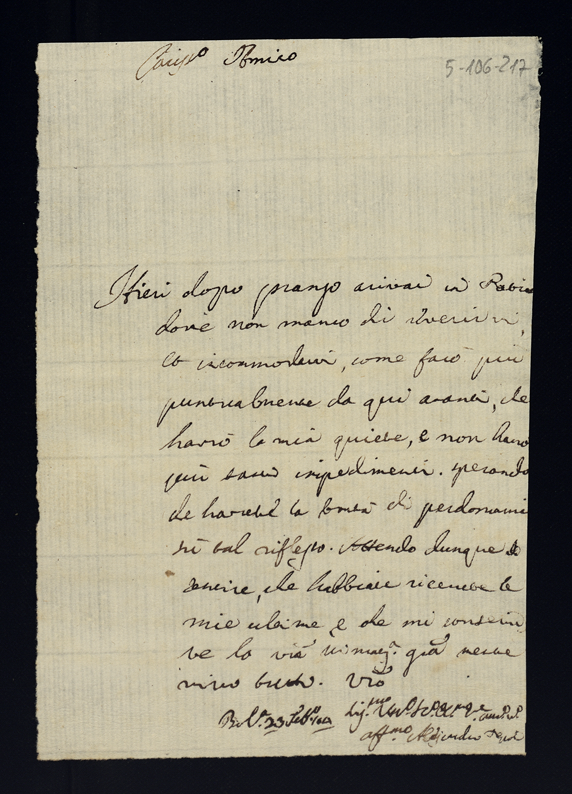 Cariss.o Amico
5-106-217
Hieri dopo pranzo arivai in Pavia
dove non manco di riverirvi,
et incommodarvi, come farò più
puntualmente da qui avanti, che
havrò la mia quiete, e non havrò
più tanti impedimenti. sperando
che havrete la bontà di perdonarmi
sù tal riflesso. Attendo dunque di
sentire, che habbiate riceuute le
mie ultime e che mi conser
ve la già
mio tutto. Vro
23 Febb.o
aff.mo Alessandro